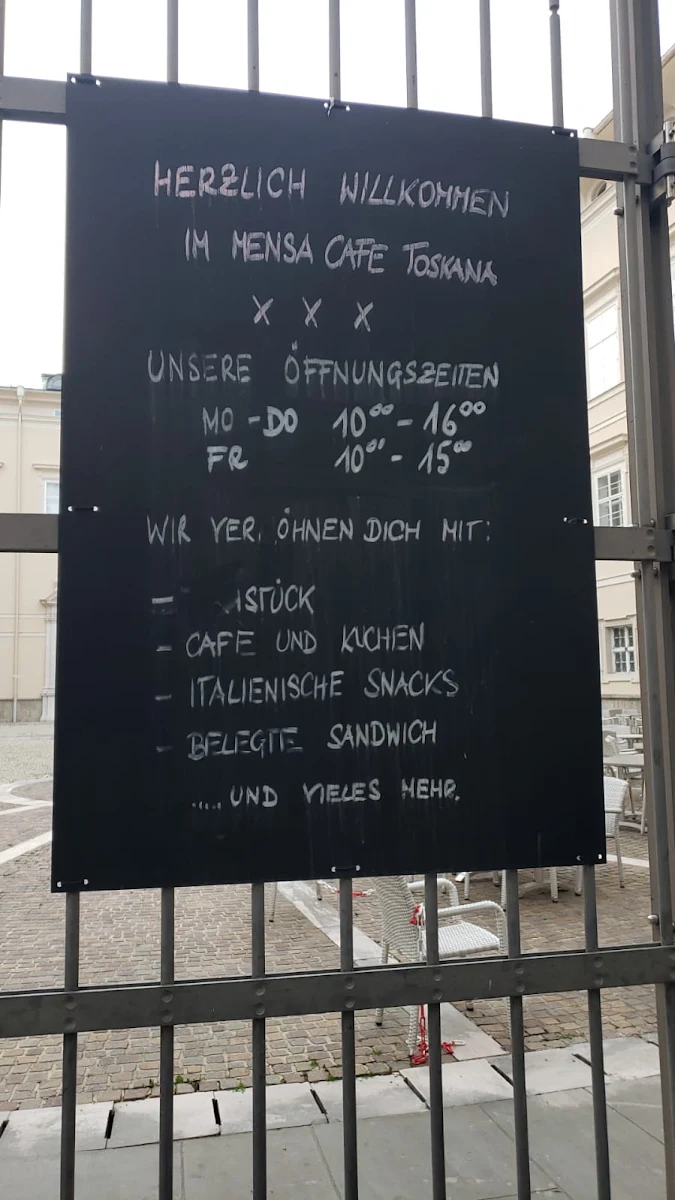 HERZLICH WILLKOMMEN
IM MENSA CAFE TOSKANA
X X X
UNSERE ÖFFNUNGSZEITEN
MO - DO 10⁰⁰ - 16⁰⁰
FR 10⁰⁰ - 15⁰⁰
WIR DICH MIT:
- CAFE UND KUCHEN
- ITALIENISCHE SNACKS
- BELEGTE SANDWICH
..... UND VIELES MEHR.